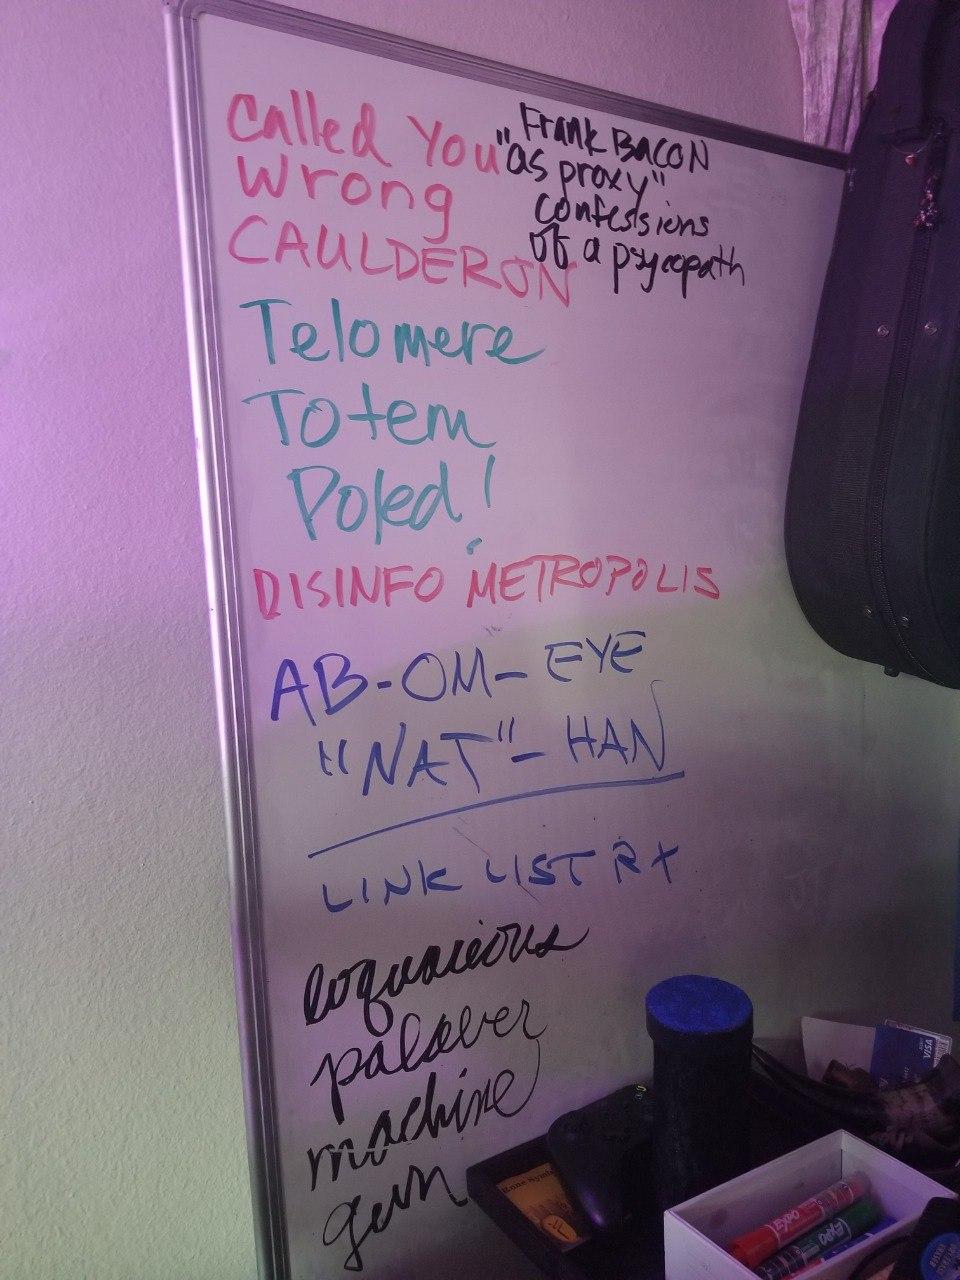 Called You
Wrong
CAULDERON
Frank BACON
"as proxy"
confessions
of a psycopath
Telomere
Totem
Poled!
DISINFO METROPOLIS
AB-OM-EYE
"NAT"-HAN
LINK LIST RX
loquacious
palaver
machine
gun
VISA
EXPO
EXPO